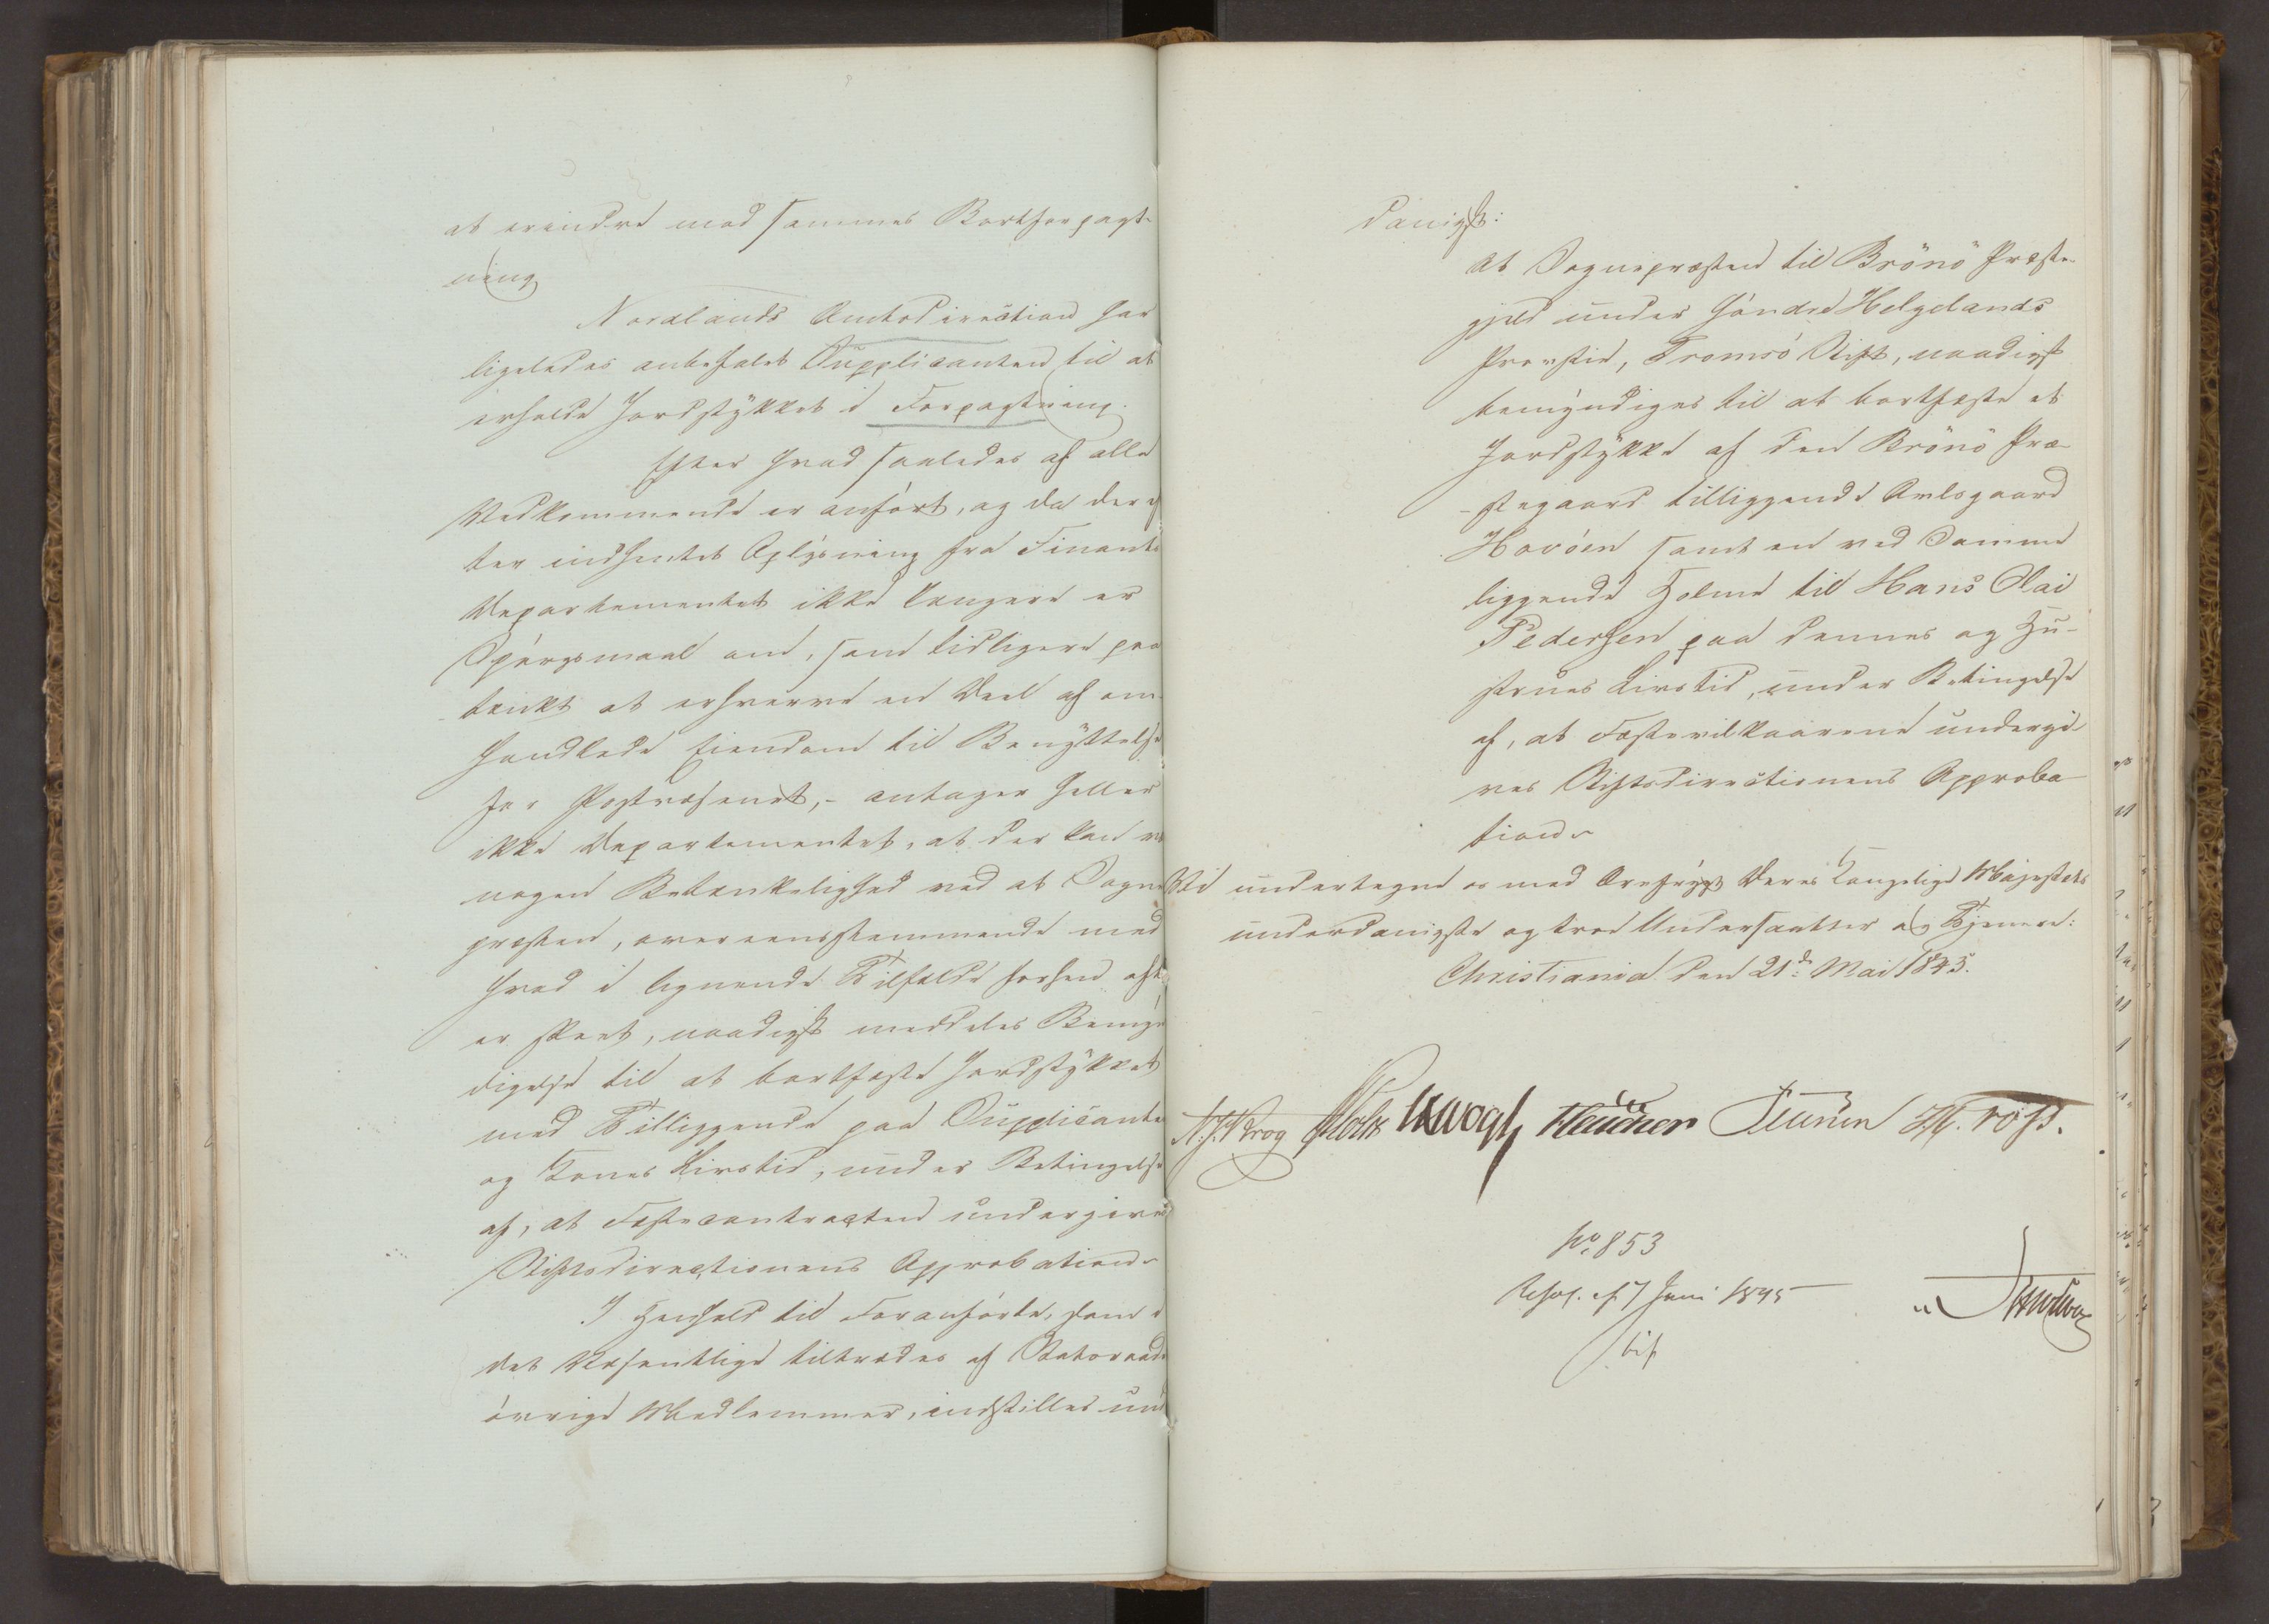 at erindre mod sammes Bortforpagt-
ning
Nordlands Amtsdirection har
ligeledes anbefalet Supplicanten til at
erholde Jordstykket i Forpagtning.
Efter hvad saaledes af alle
Vedkommende er anført, og da der ef
ter indhentet Oplysning fra Finants
Departementet ikke længere er
Spørgsmaal om, som tidligere paa
tænkt at erhverve en Deel af om-
handlede Eiendom til Benyttelse
for Postvæsenet, - antager heller
ikke Departementet, at der kan være
nogen Betænkelighed ved at Sogne
præsten, overeensstemmende med
hvad i lignende Tilfælde forhen ofte
er skeet, naadigst meddeles Bemyn
digelse til at bortfæste Jordstykket
med Tilliggende paa Supplicantens
og Kones Livstid, under Betingelse
af, at Fæstecontracten undergives
Stiftsdirectionens Approbation.
I Henhold til Foranførte, som i
det Væsentlige tiltrædes af Statsraadets
øvrige Medlemmer, indstilles under
danigst:
At Sognepræsten til Brönö Præste-
gjeld under Söndre Helgelands
Provstie, Tromsö Stift, naadigst
bemyndiges til at bortfæste et
Jordstykke af den Brönö Præ-
-stegaard tilliggende Avlsgaard
Havöen samt en ved Samme
liggende Holme til Hans Olai
Pedersen paa dennes og Hu-
strues Livstid, under Betingelse
af, at Fæstevilkaarene undergi
ves Stiftsdirectionens Approba
tion.
Vi undertegne os med Ærefrygt Deres Kongelige Majestæts
underdanigste og troe Undersaatter og Tjenere:
Christiania den 21de Mai 1845.
N. J. Krog Holst Vogt
No 853
Resol. af 7 Juni 1845
bif.